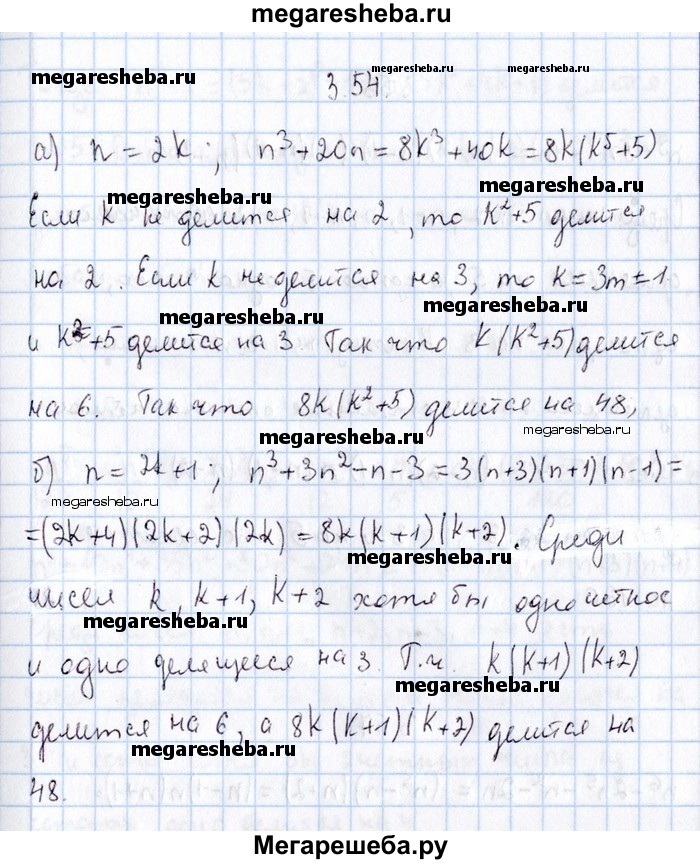 megaresheba.ru
megaresheba.ru megaresheba.ru megaresheba.ru
3.54.
а) n = 2k ; n³+20n = 8k³+40k = 8k(k⁵+5)
megaresheba.ru megaresheba.ru
Если k не делится на 2, то k²+5 делится
на 2. Если k не делится на 3, то k=3m±1
megaresheba.ru megaresheba.ru
и k²+5 делится на 3. Так что k(k²+5) делится
на 6. Так что 8k(k²+5) делится на 48,
megaresheba.ru megaresheba.ru
б) n = 2k+1; n³+3n²-n-3=3(n+3)(n+1)(n-1)=
megaresheba.ru
=(2k+4)(2k+2)(2k) = 8k(k+1)(k+2). Среди
megaresheba.ru
чисел k, k+1, k+2 хотя бы одно четное
megaresheba.ru
и одно делящееся на 3. Т.ч. k(k+1)(k+2)
megaresheba.ru
делится на 6, а 8k(k+1)(k+2) делится на
megaresheba.ru
48.
Мегарешеба.ру